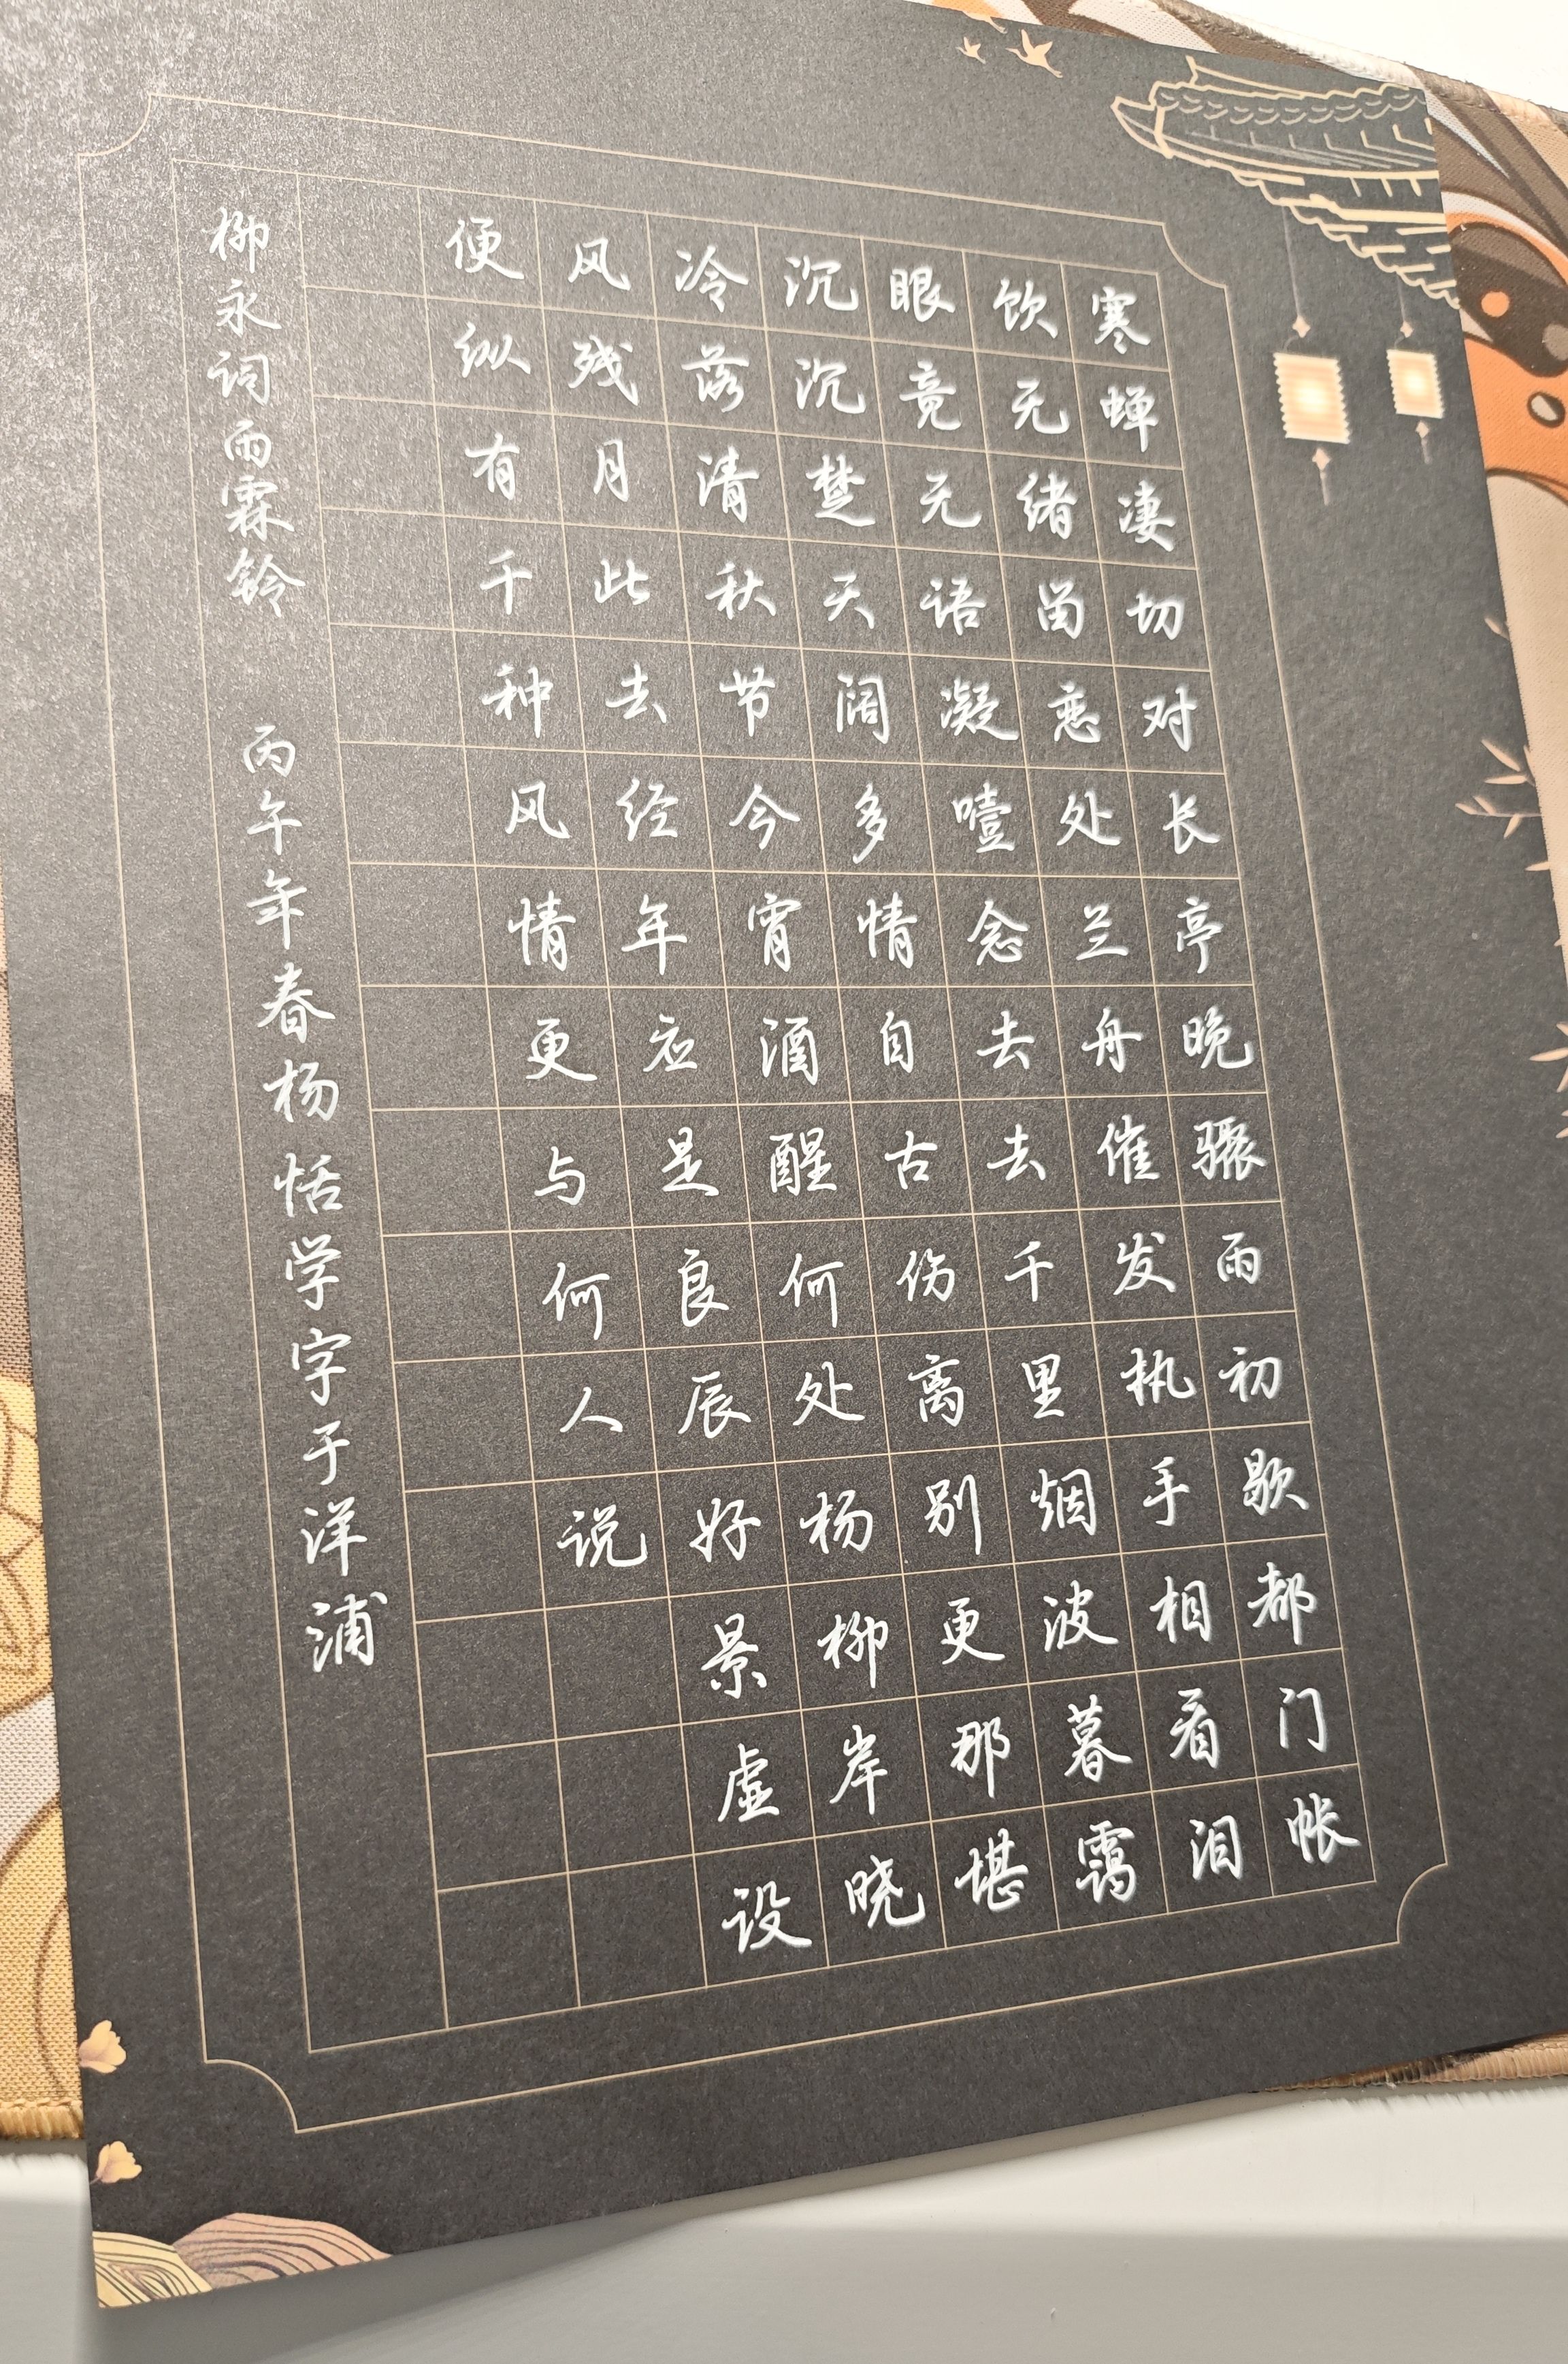 寒蝉凄切对长亭晚骤雨初歇都门帐
饮无绪留恋处兰舟催发执手相看泪
眼竟无语凝噎念去去千里烟波暮霭
沉沉楚天阔多情自古伤离别更那堪
冷落清秋节今宵酒醒何处杨柳岸晓
风残月此去经年应是良辰好景虚设
便纵有千种风情更与何人说
柳永词雨霖铃 丙午年春杨恬学字于洋浦